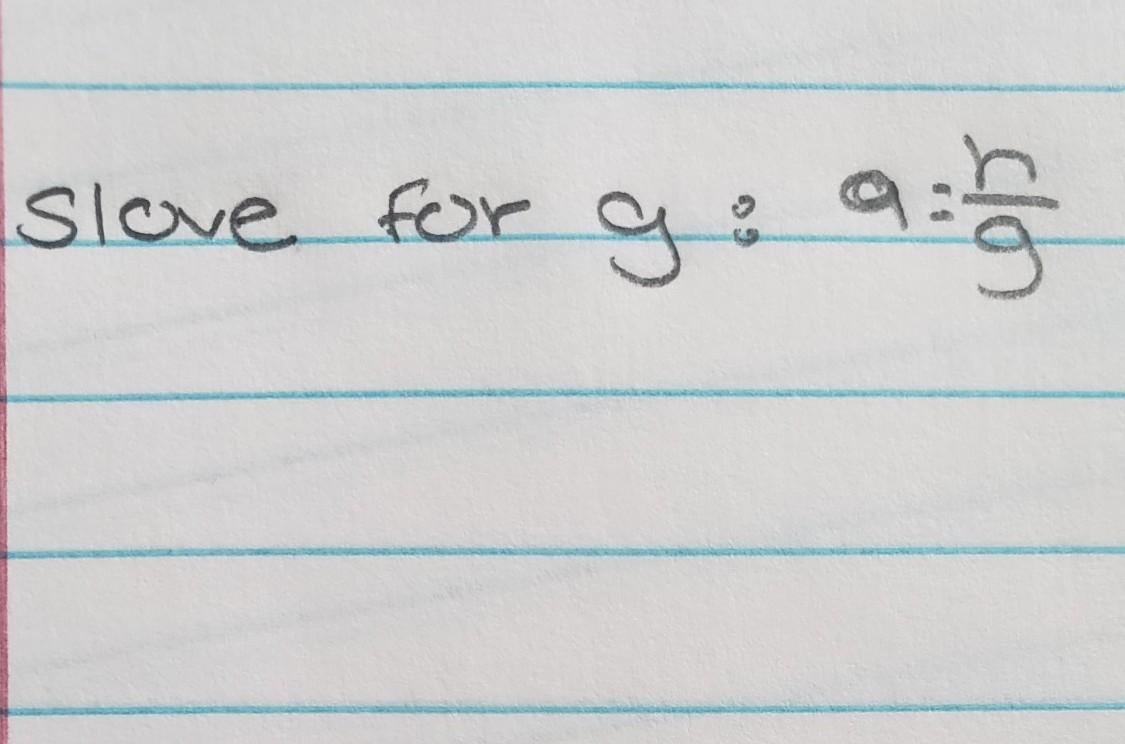 Slove for g : a = n/g